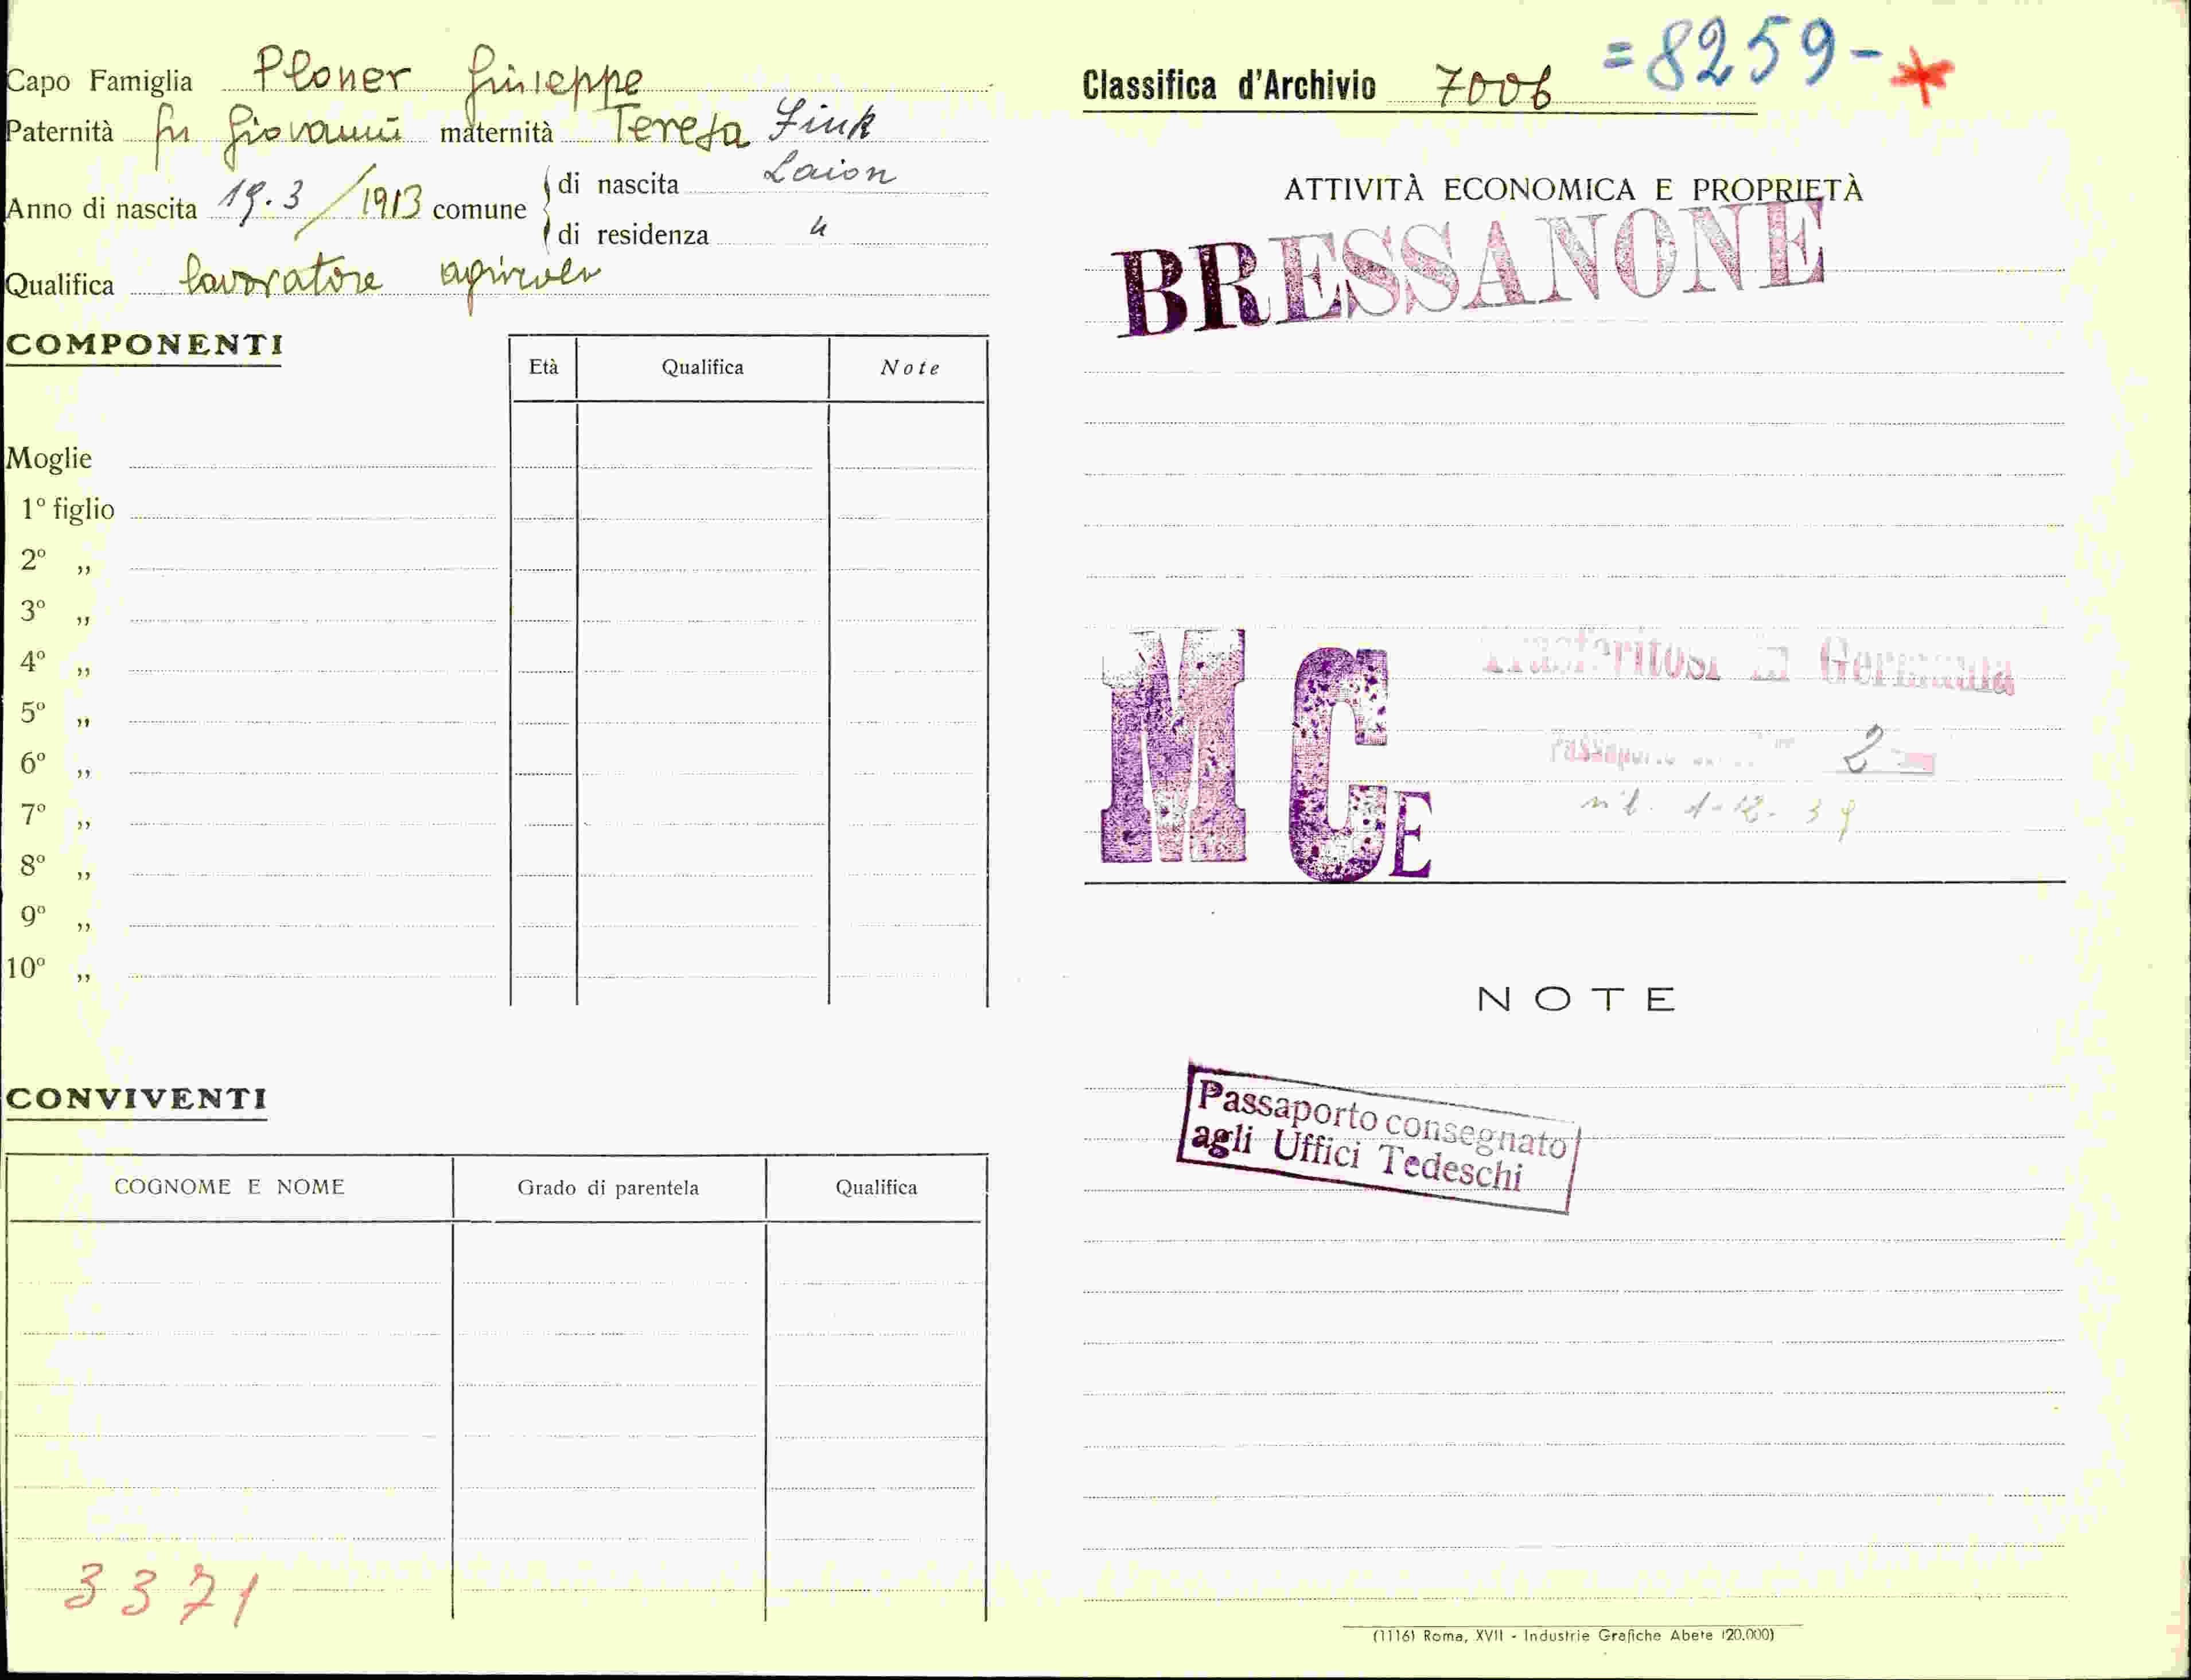 Capo Famiglia Ploner Giuseppe
Paternità fu Giovanni maternità Teresa Fink
Anno di nascita 19.3/1913 comune di nascita Laion
di residenza "
Qualifica lavoratore agricolo
COMPONENTI
Età Qualifica Note
Moglie
1º figlio
2º "
3º "
4º "
5º "
6º "
7º "
8º "
9º "
10º "
CONVIVENTI
COGNOME E NOME Grado di parentela Qualifica
3371
=8259-*
Classifica d'Archivio 7006
ATTIVITÀ ECONOMICA E PROPRIETÀ
BRESSANONE
MCE
Trasferitosi in Germania
Passaporto 2
1-12-39
NOTE
Passaporto consegnato
agli Uffici Tedeschi
(1116) Roma, XVII - Industrie Grafiche Abete (20.000)